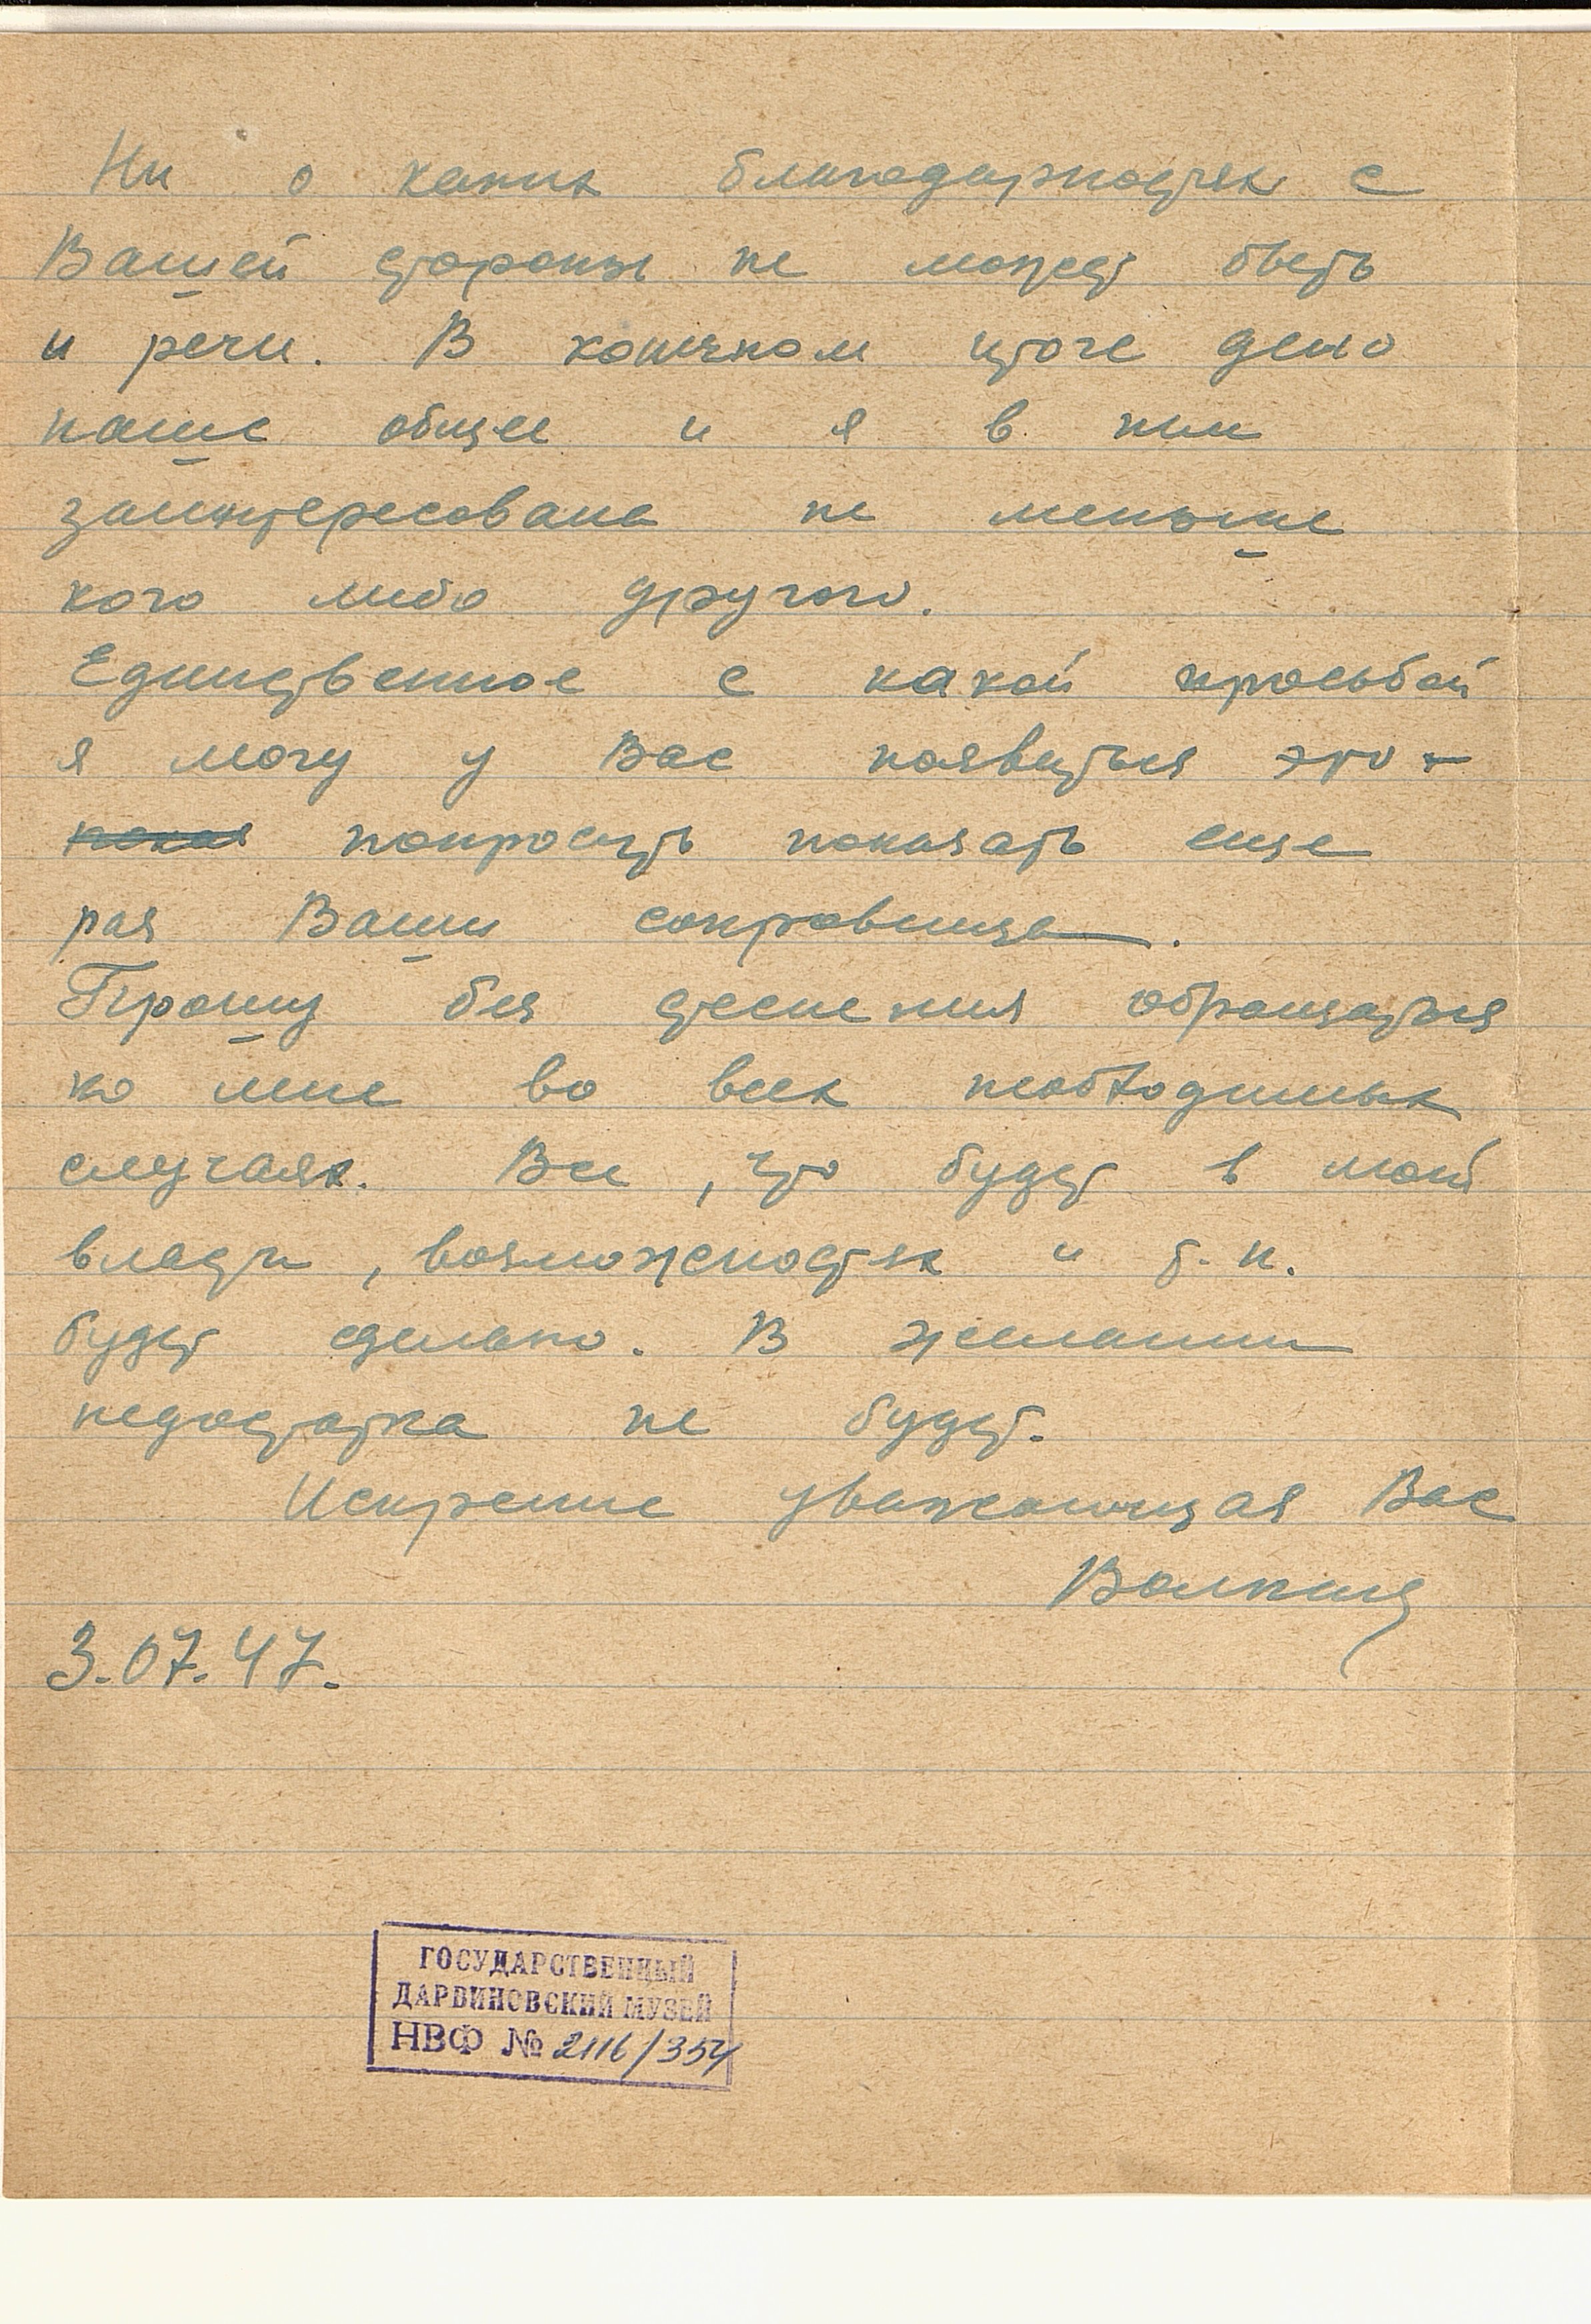 Ни о каких благодарностях с
Вашей стороны не может быть
и речи. В конечном итоге дело
наше общее и я в нем
заинтересована не меньше
кого либо другого.
Единственное с какой просьбой
я могу у Вас появиться это -
попросить показать еще
раз Ваши сокровища.
Прошу без стеснения обращаться
ко мне во всех необходимых
случаях. Все, что будет в моей
власти, возможностях и т.п.
будет сделано. В желании
недостатка не будет.
Искренне уважающая Вас
3.07.47.
ГОСУДАРСТВЕННЫЙ
ДАРВИНОВСКИЙ МУЗЕЙ
НВФ № 2116/354